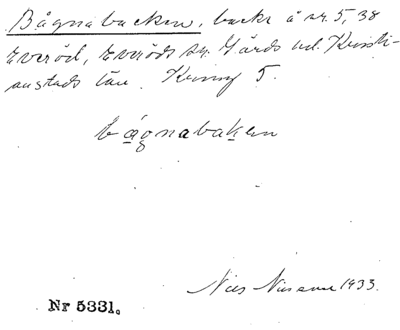 Bågnabacken, backe å nr. 5, 38
Everöd, Everöds sn. Gärds hd. Kristi-
anstads län. 5.
bågnabaken
Nils Nilsson 1933.
Nr 5331.